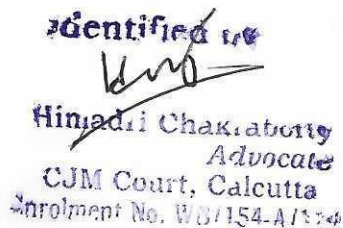 Identified by
Himadri Chakraborty
Advocate
CJM Court, Calcutta
Enrolment No.